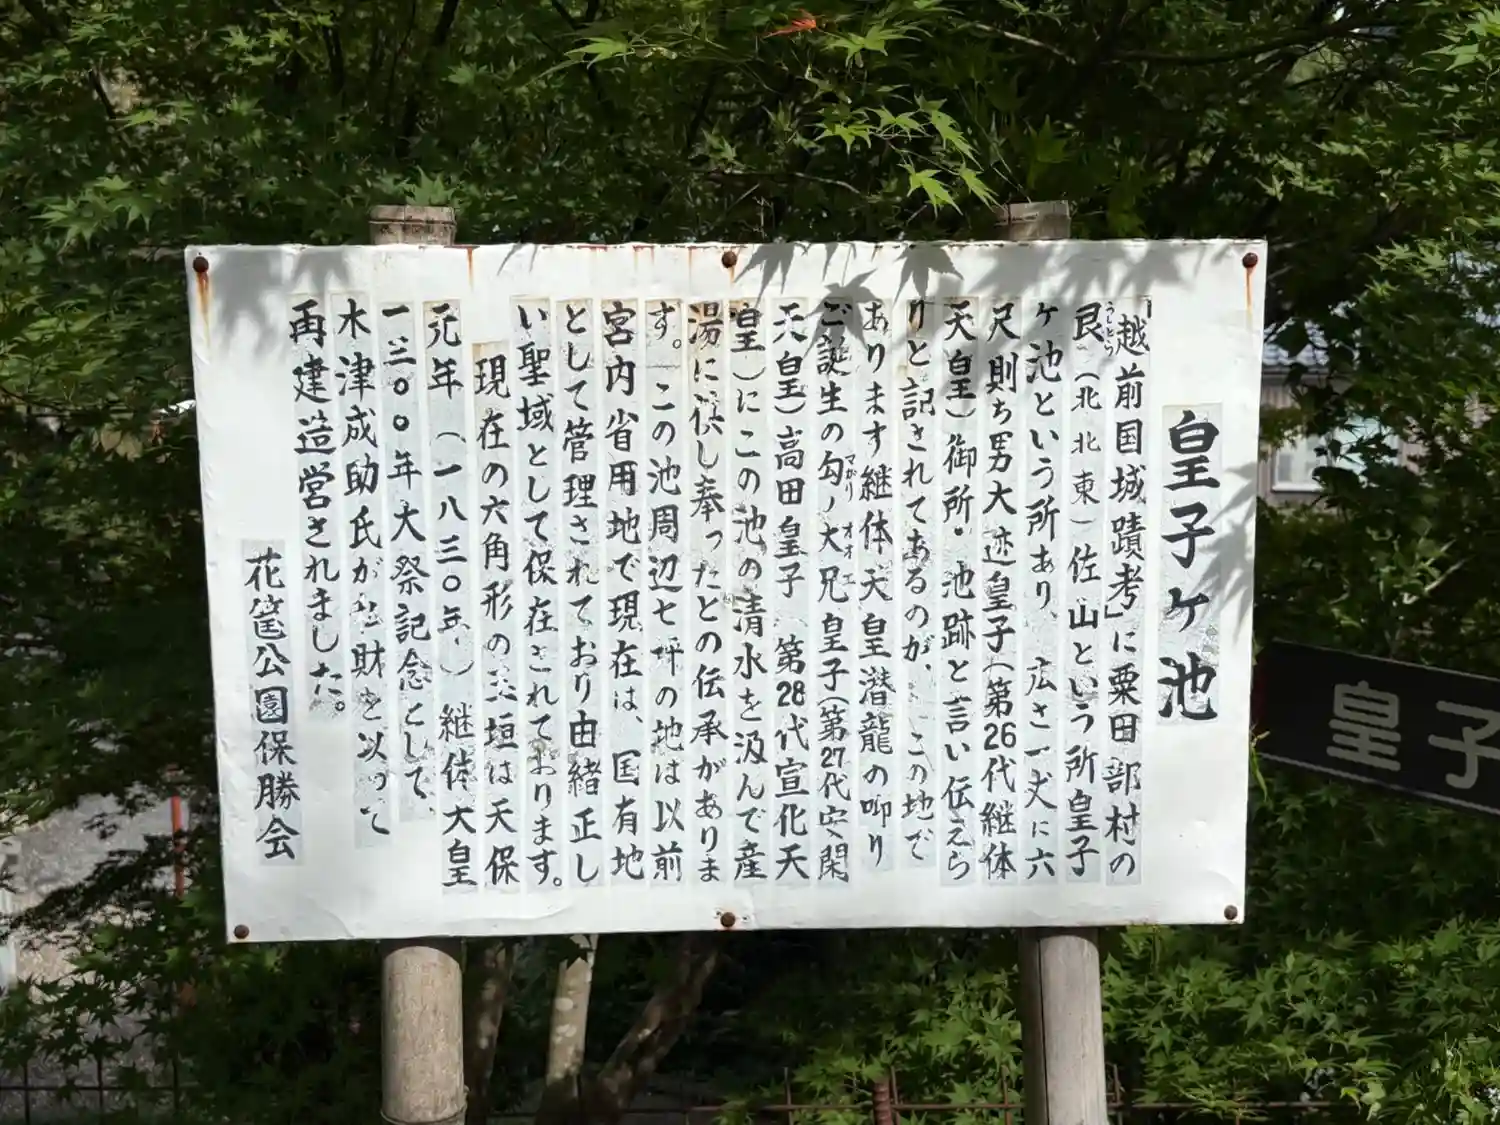 皇子ヶ池
「越前国城蹟考」に粟田部村の
艮(北北東)佐山という所皇子
うしとら
ヶ池という所あり、広さ一丈に六
尺則ち男大迹皇子(第26代継体
天皇)御所・池跡と言い伝えら
りと記されてあるのが、この地で
あります継体天皇潜龍の御り
ご誕生の勾ノ大兄皇子(第27代安閑
マガリ オオエ
天皇)高田皇子 第28代宣化天
皇)にこの池の清水を汲んで産
湯に供し奉ったとの伝承がありま
す。この池周辺七坪の地は以前
宮内省用地で現在は、国有地
として管理されており由緒正し
い聖域として保存されております。
現在の六角形の玉垣は天保
元年(一八三〇年)継体大皇
一三〇〇年大祭記念として、
木津成助氏が私財を以って
再建造営されました。
花筐公園保勝会
皇子